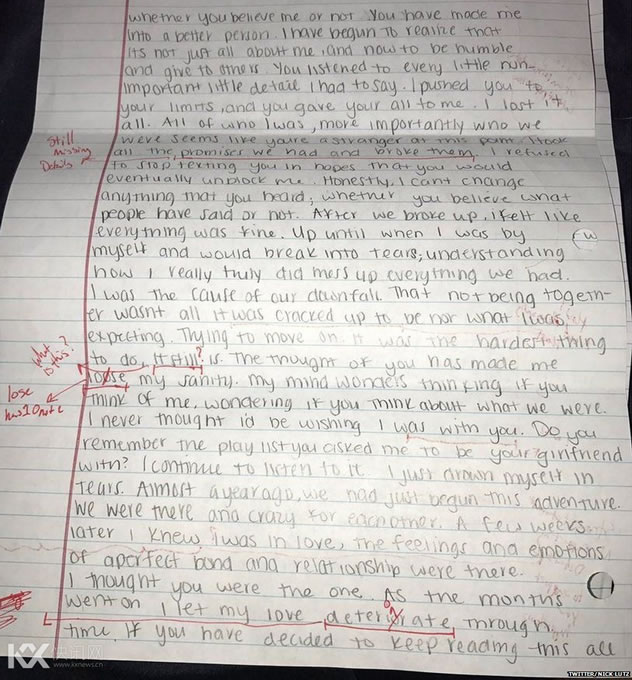 whether you believe me or not. You have made me
into a better person. I have begun to realize that
its not just all about me, and how to be humble
and give to others. You listened to every little nun-
important little detail I had to say. I pushed you to
your limits, and you gave your all to me. I lost it
all. All of who I was, more importantly who we
were seems like you're a stranger at this point. I took
all the promises we had and broke them. I refused
to stop texting you in hopes that you would
eventually unblock me. Honestly, I cant change
anything that you heard, whether you believe what
people have said or not. After we broke up, I felt like
everything was fine. Up until when I was by
myself and would break into tears, understanding
how I really truly did mess up everything we had.
I was the cause of our downfall. That not being togeth-
er wasnt all it was cracked up to be nor what I was
expecting. Trying to move on it was the hardest thing
to do, it still? is. The thought of you has made me
loose my sanity. my mind wonders thinking if you
think of me. wondering if you think about what we were.
I never thought i'd be wishing I was with you. Do you
remember the play list you asked me to be your girlfriend
with? I continue to listen to it I just drown myself in
tears. Almost a year ago, we had just begun this adventure.
We were there and crazy for each other. A few weeks
later I knew i was in love, the feelings and emotions
of a perfect bond and relationship were there.
I thought you were the one. As the months
went on I let my love deteriorate, through
time. If you have decided to keep reading this all
Still
missing
Details
What
is this?
lose
has 1 O not 2
KX
www.kxnews.cn
TWITTER/NICK LUTZ